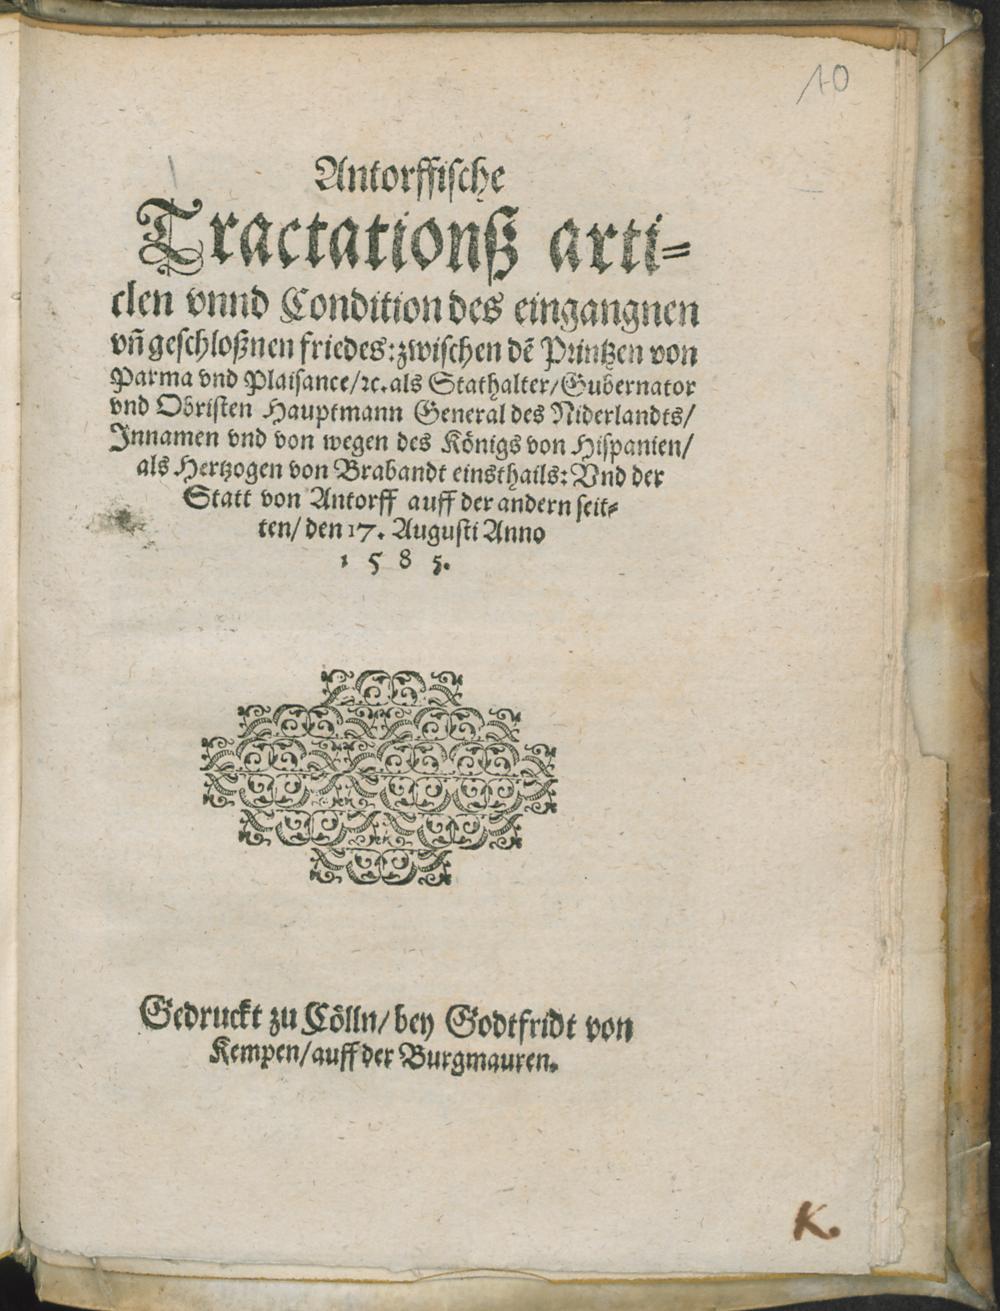 10
Antorffische
Tractationß arti-
clen vnnd Condition des eingangnen
vñ geschloßnen friedes: zwischen dẽ Printzen von
Parma vnd Plaisance/ ꝛc. als Stathalter/ Gubernator
vnd Obristen Hauptmann General des Niderlandts/
Innamen vnd von wegen des Königs von Hispanien/
als Hertzogen von Brabandt einsthails: Vnd der
Statt von Antorff auff der andern seit-
ten/ den 17. Augusti Anno
1585.
Gedruckt zu Cölln/ bey Godtfridt von
Kempen/ auff der Burgmauren.
K.